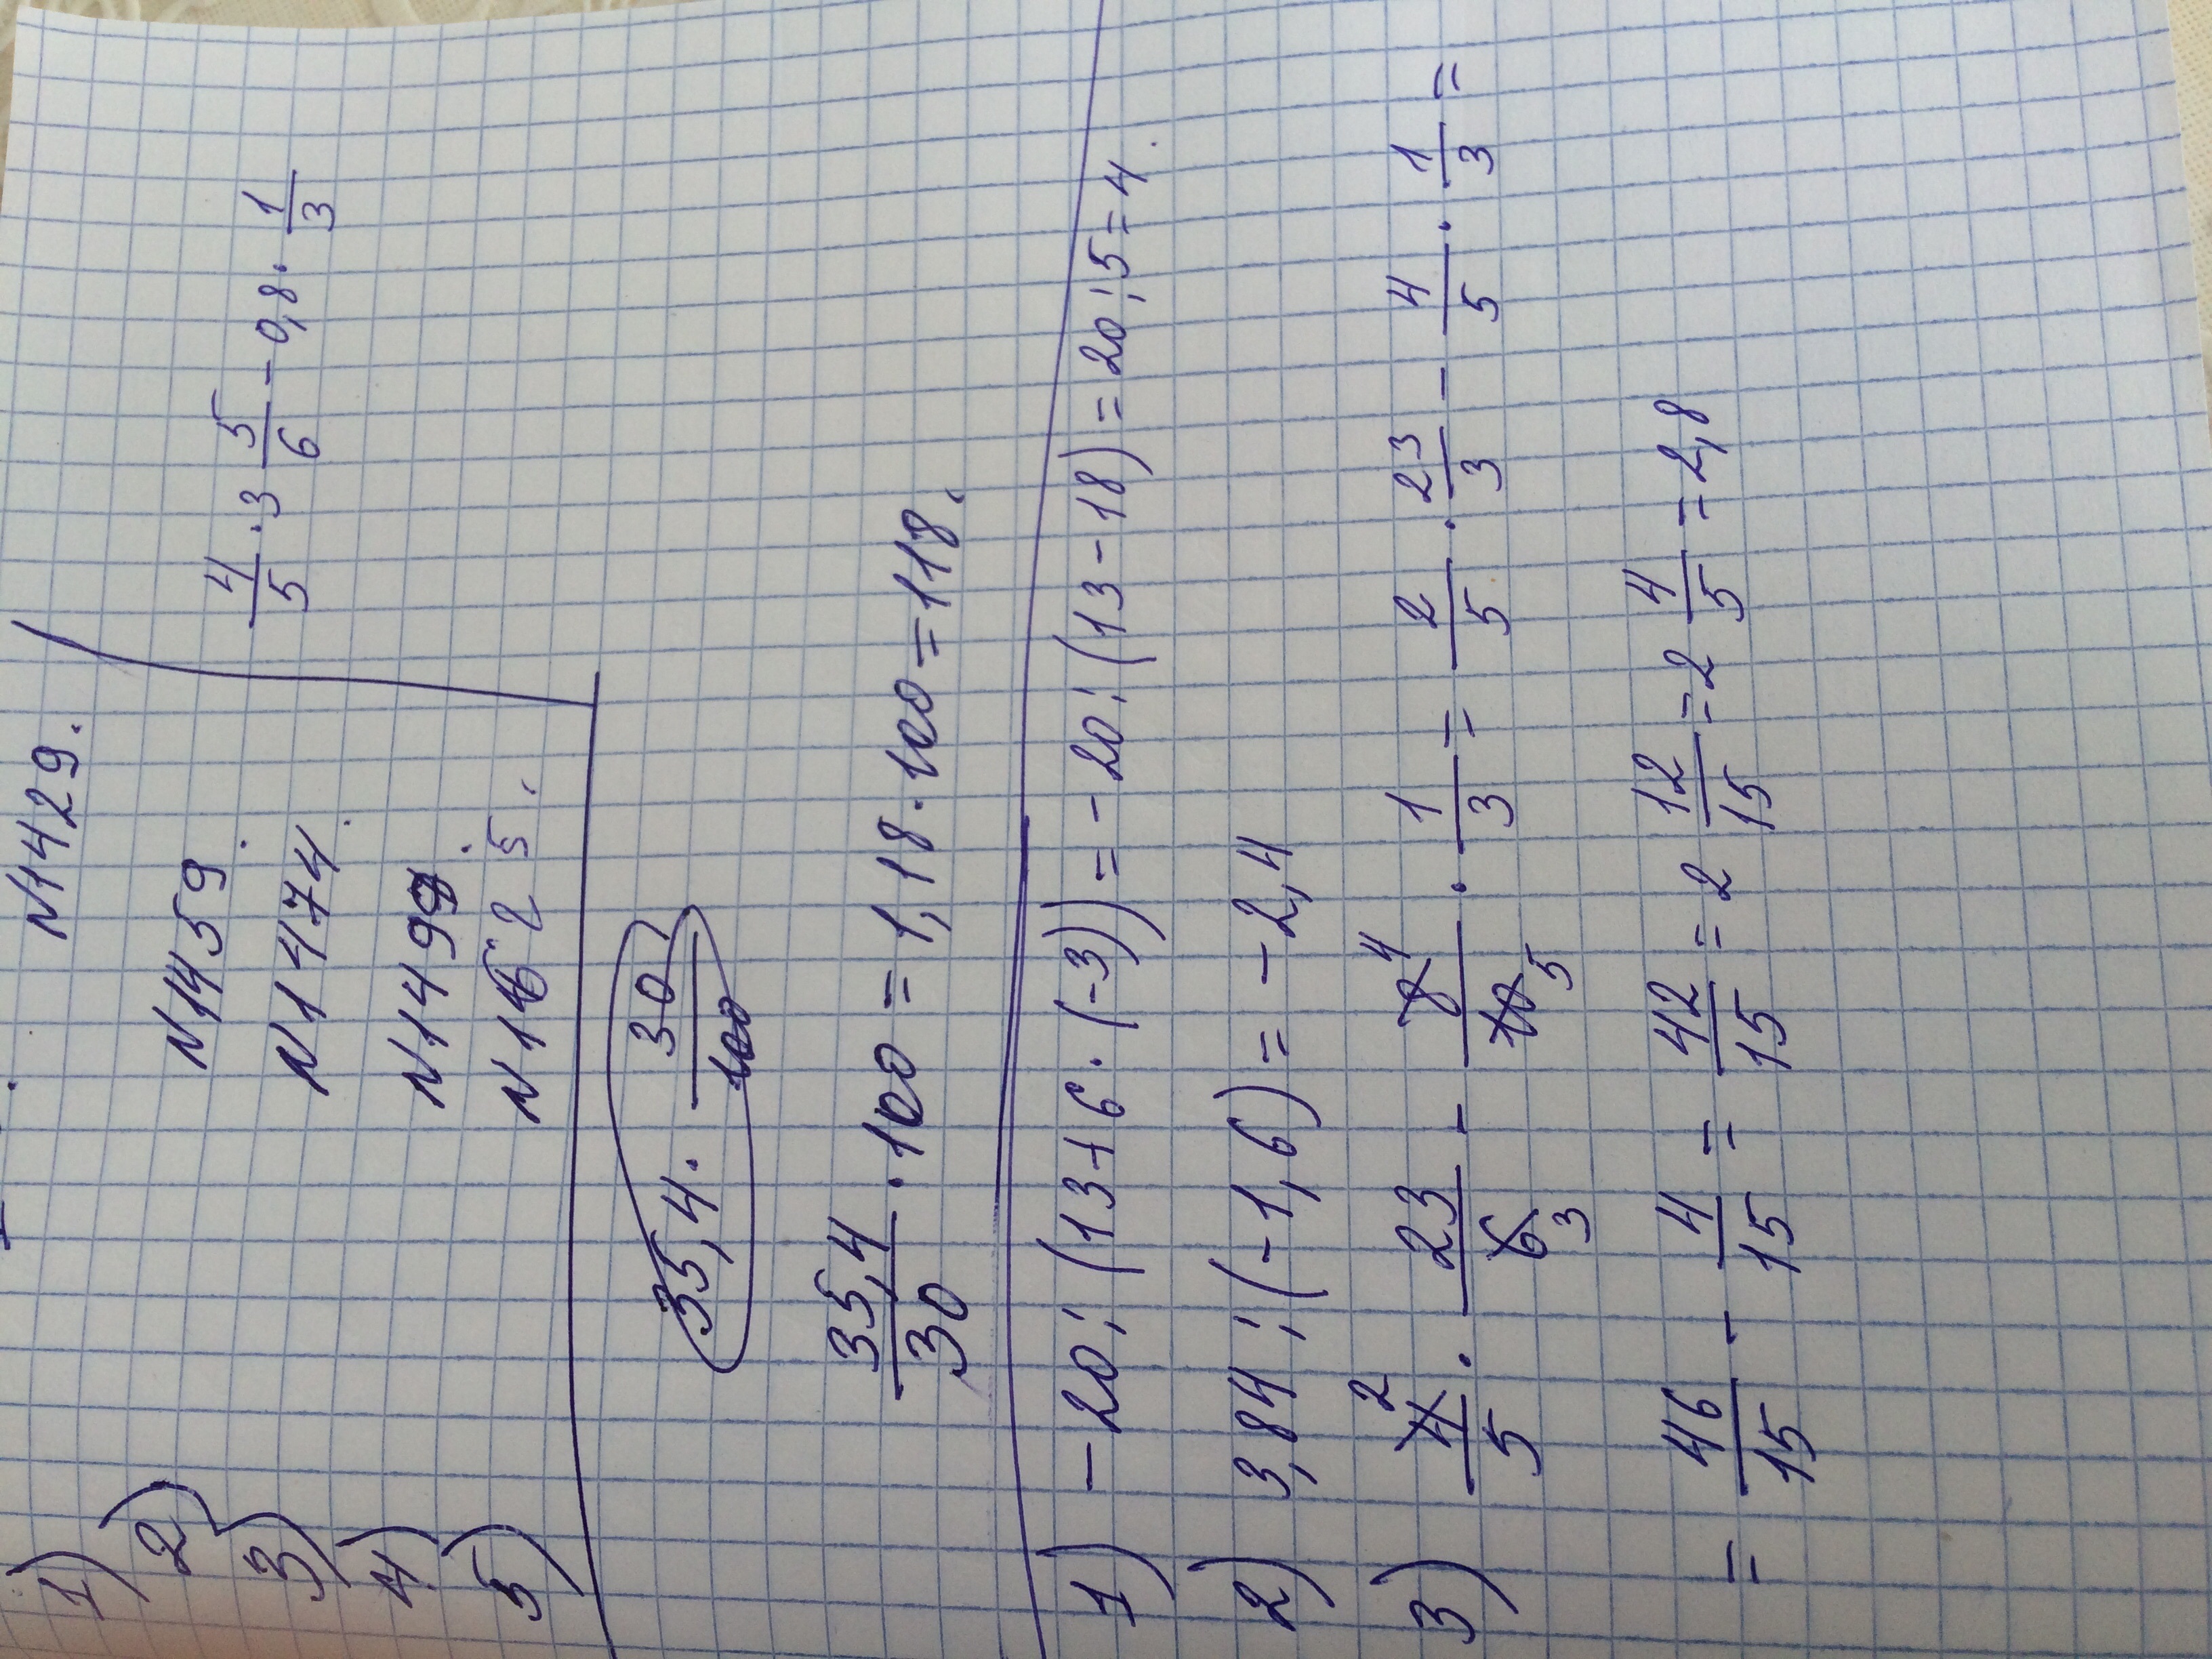 1) N1429.
2) N1459.
3) N1474.
4) N1499.
5) N1625.
4/5 · 3 5/6 - 0,8 · 1/3
35,4 · 30/100
35,4/30 · 100 = 1,18 · 100 = 118.
1) -20 : (13 + 6 · (-3)) = -20 : (13 - 18) = 20 : 5 = 4.
2) 3,84 : (-1,6) = -2,4
3) 4/5 2 · 23/6 3 - 8/10 4 5 · 1/3 = 2/5 · 23/3 - 4/5 · 1/3 =
= 46/15 - 4/15 = 42/15 = 2 12/15 = 2 4/5 = 2,8